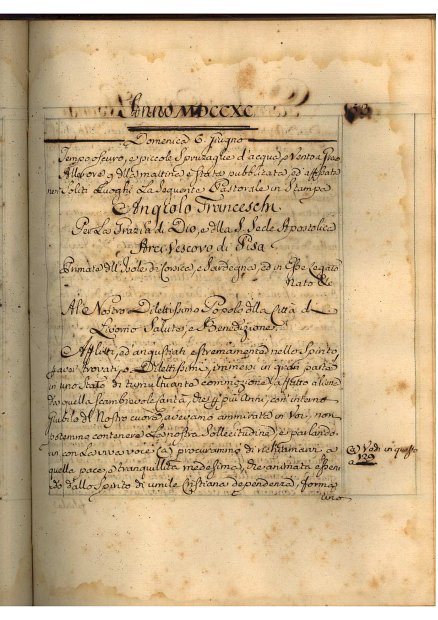 Anno MDCCXC
Domenica 6. Giugno
Tempo oscuro, e piccole Spruzaglie d'acqua, e Vento a
Alle ore 9 dell: mattina è stata pubblicata, ed affissa
ne' Soliti Luoghi La Seguente Pastorale in Stampa
Angiolo Franceschi
Per La Grazia di Dio, e della S. Sede Apostolica
Arcivescovo di Pisa
Primate dell'Isole di Corsica, e Sardegna, ed in Esse Legato
Nato &c
Al Nostro Dilettissimo Popolo della Città di
Livorno Salute, e Benedizione,
Afflitti, ed angustiati estremamente nello Spirito
nel trovarvi, o Dilettissimi, immersi in gran parte
in uno Stato di tumultuante commozione affatto aliena
da quella scambievole carità, che più Anni, con interno
giubilo del Nostro cuore avevamo ammirato in Voi, non
potemmo contenere La nostra Sollecitudine, e parlando
vi con La viva voce (a) procurammo di richiamarvi a
quella pace, e tranquillità medesima, che animata essen
do dallo Spirito di umile Cristiana dependenza, forma
rono
(a) Vedi in questo
a 129